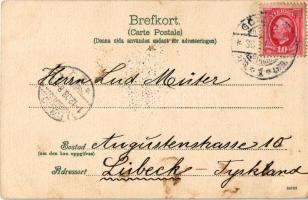 Brefkort.
(Carte Postale)
(Denna sida användes endast för adresseringen)
SVERIGE
10
Herrn Lud Muter
Bostad
(om den kan uppgifves)
Augustenstrasse 10
Adressort
Lübeck - Tyskland